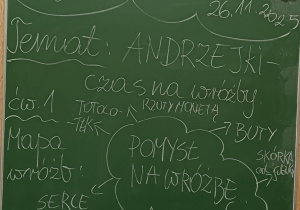 26.11.2025
Temat: ANDRZEJKI -
czas na wróżby.
ćw. 1
Mapa
wróżb:
RZUT MONETĄ
BUTY
POMYSŁ
NA WRÓŻBĘ
SKÓRKA
SERCE